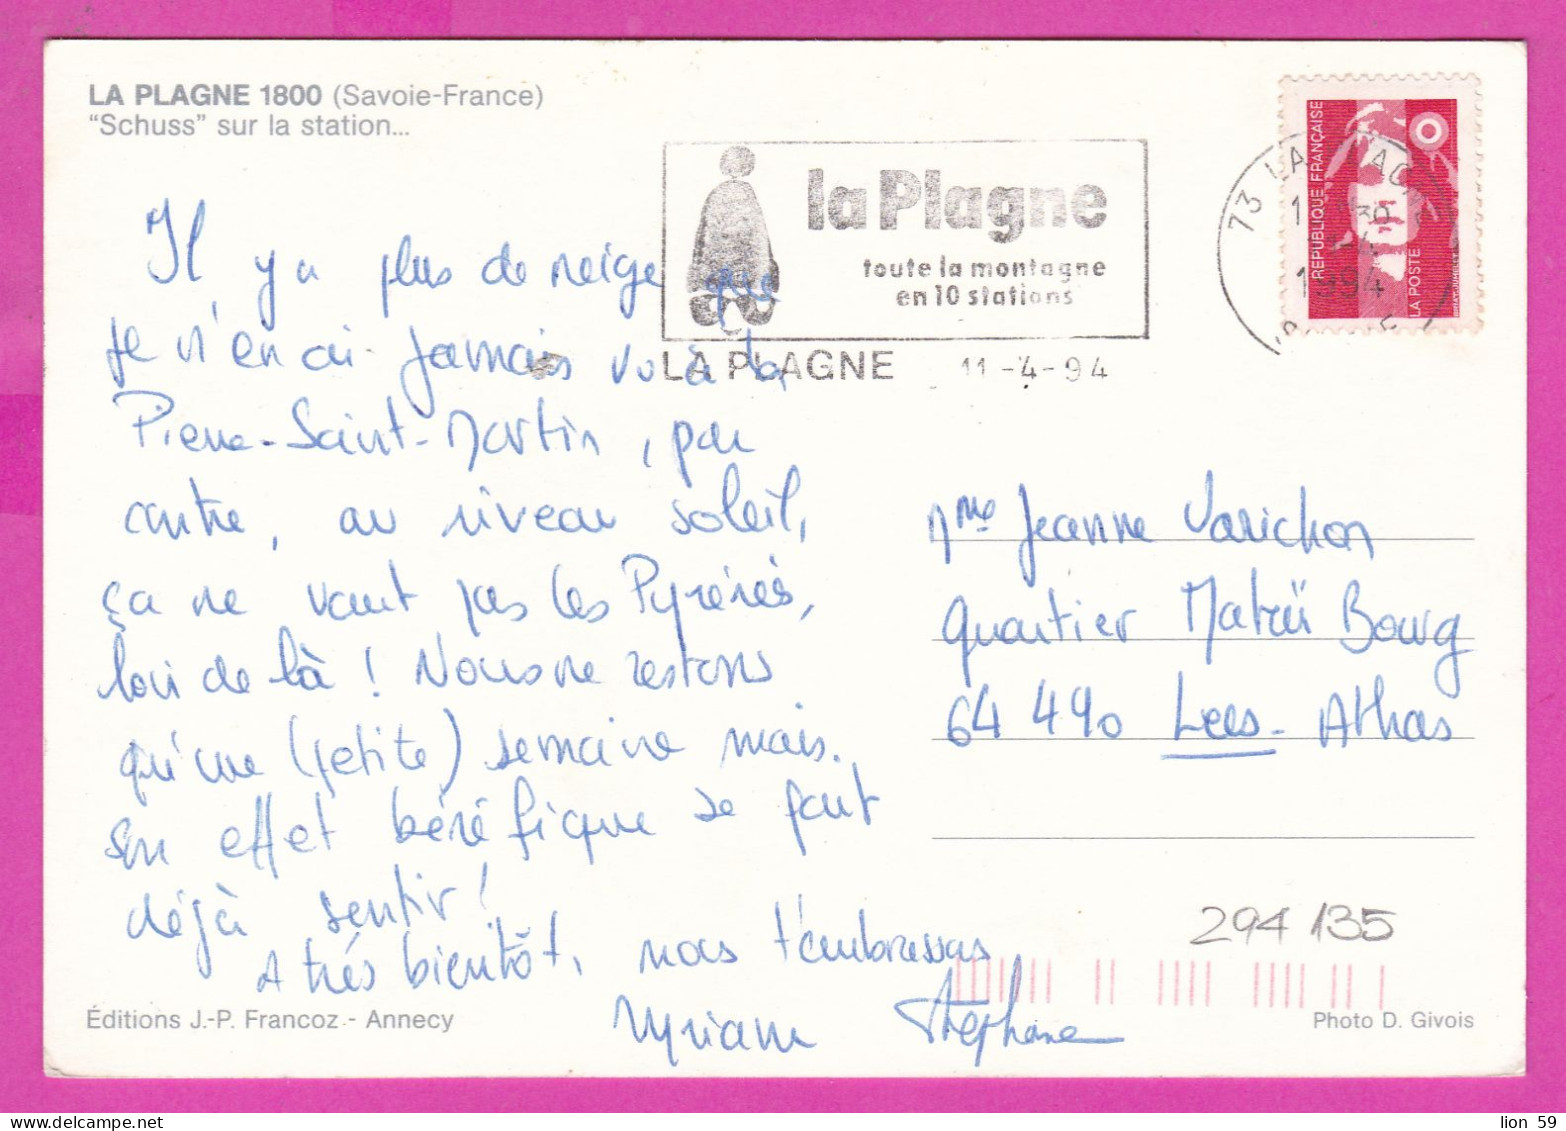 LA PLAGNE 1800 (Savoie-France)
"Schuss" sur la station...
la Plagne
toute la montagne
en 10 stations
LA PLAGNE 11-4-94
73 LA PLAGNE
1994
SAVOIE
REPUBLIQUE FRANÇAISE
LA POSTE
Il y a plus de neige que
je n'en ai jamais vu à la
Pierre-Saint-Martin, par
contre, au niveau soleil,
ça ne vaut pas les Pyrénées,
loin de là ! Nous ne restons
qu'une (petite) semaine mais
son effet bénéfique se fait
déjà sentir !
A très bientôt, nous t'embrassons
Myriam Stéphane
Mme Jeanne Varichon
Quartier Bourg
64 490 Lees-Athas
294 135
Éditions J.-P. Francoz - Annecy
Photo D. Givois
lion 59